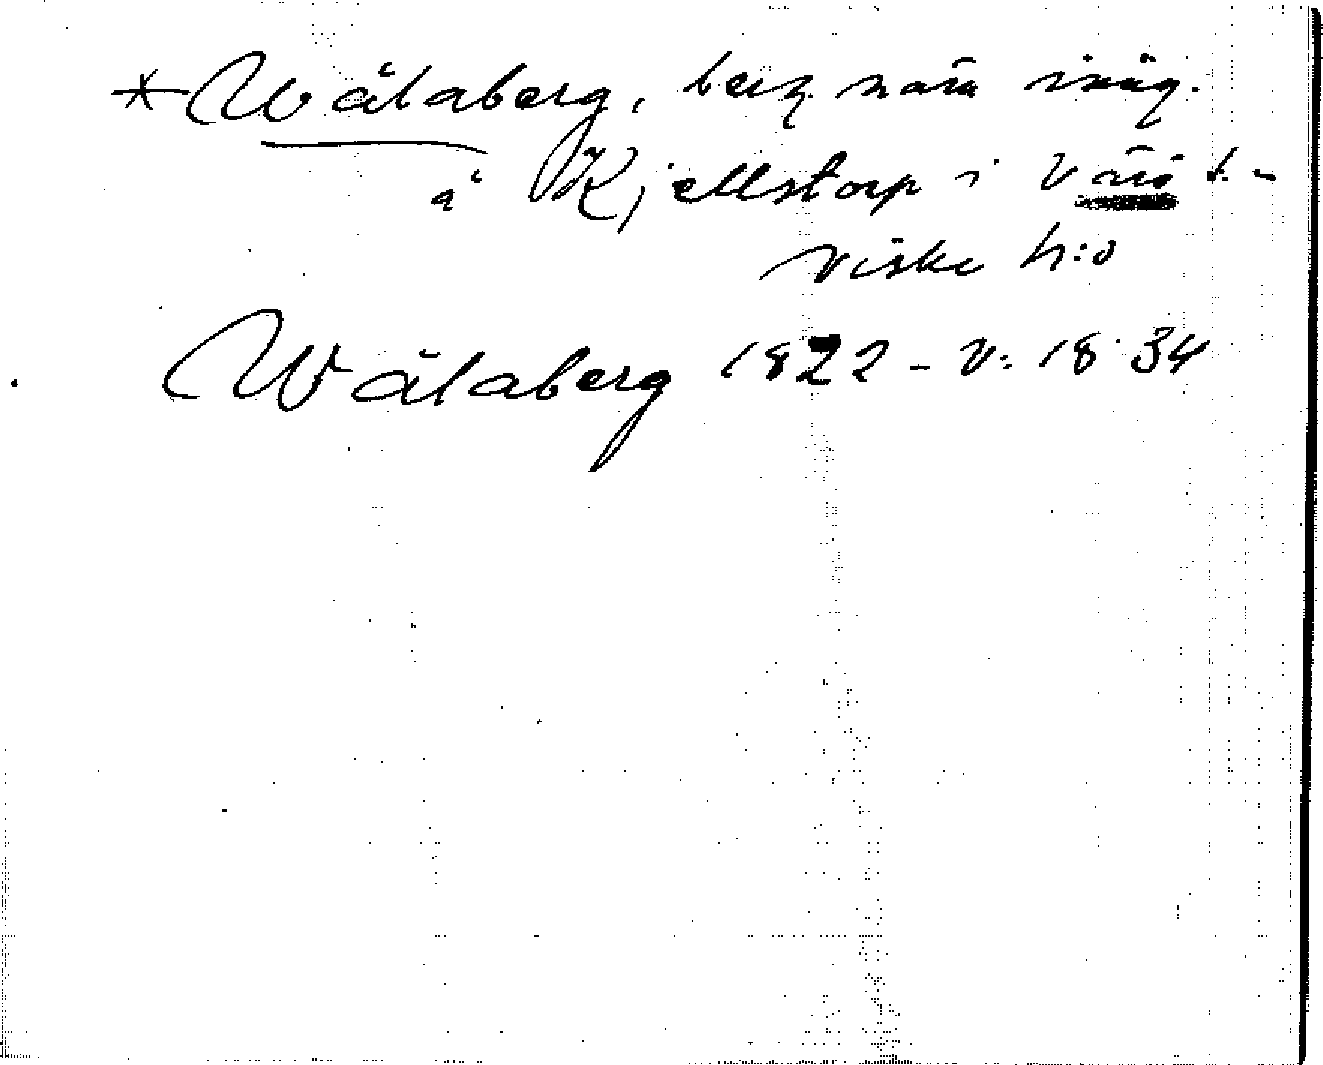 * Wålaberg, berg nära inäg.
å Kjellstorp i Värö s:n
Viske h:d
Wålaberg 1822 - V: 18 34